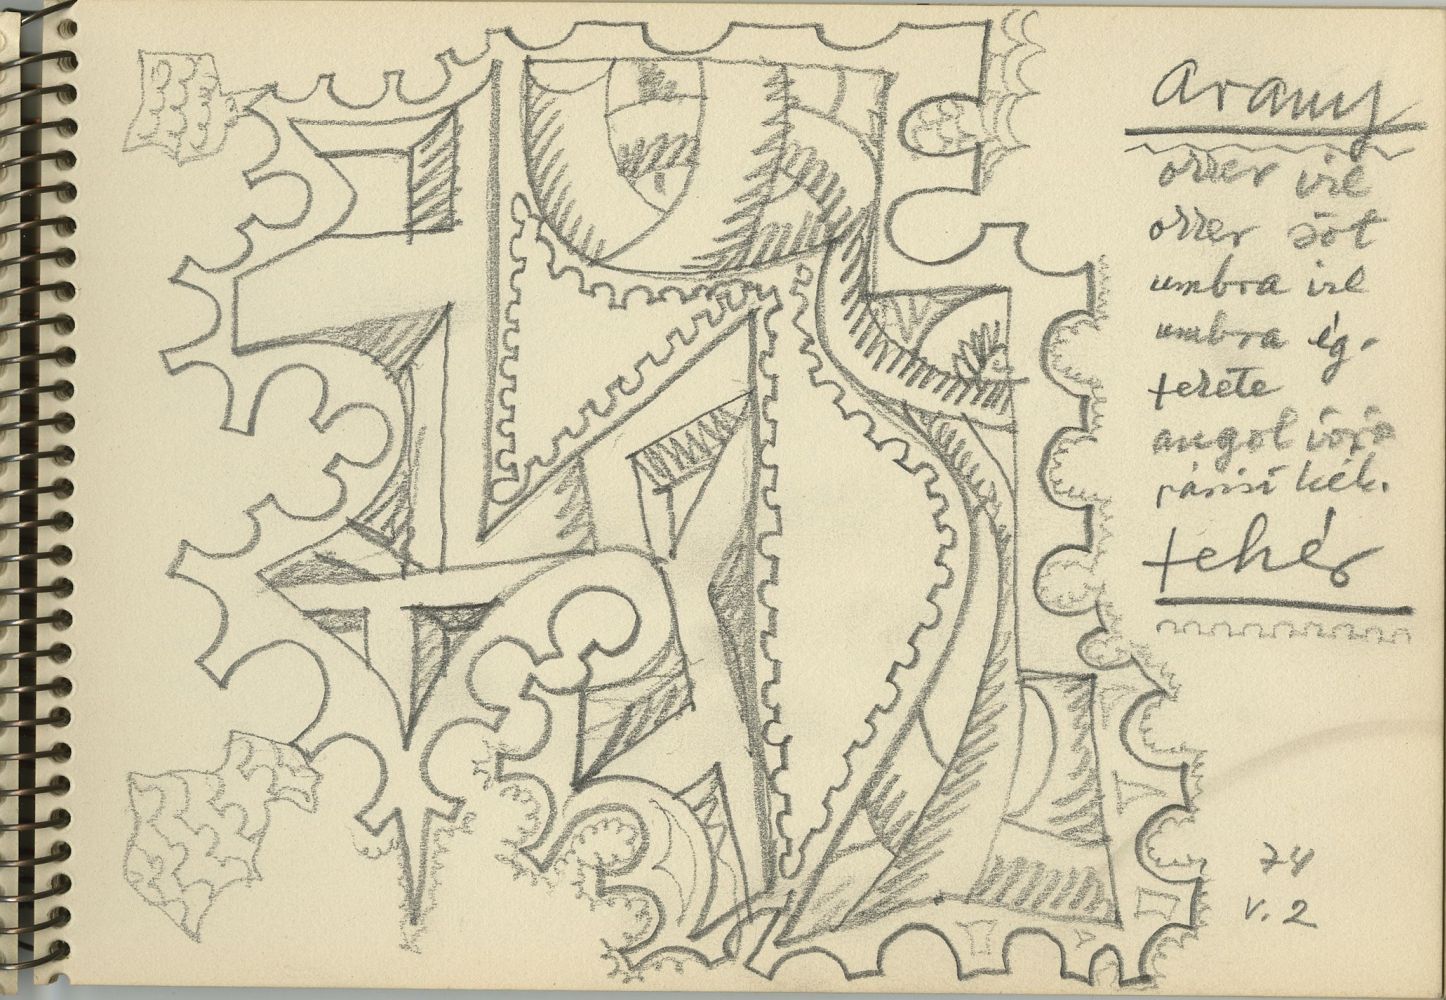 arany
okker vil
okker söt
umbra vil
umbra ég.
fekete
angol vörö
párisi kék.
fehér
74
V. 2